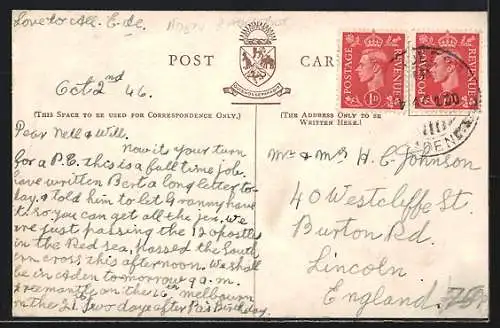 Love to All. E. de.
POST CARD
Oct 2nd 46.
(THIS SPACE TO BE USED FOR CORRESPONDENCE ONLY.)
(THE ADDRESS ONLY TO BE
WRITTEN HERE.)
POSTAGE REVENUE
1D
POSTAGE REVENUE
ADEN
Dear Nell & Will.
Now it your turn
for a P.C. this is a full time job.
have written Bert a long letter to-
day, & told him to let Granny have
it. so you can get all the
We
are just passing the 12 apostles
in the Red sea, passed the South
ern cross this afternoon. We shall
be in Aden tomorrow 9 a.m.
Freemantle on the 16th melbourn
on the 21. Two days after Pa's Birthday.
Mr & Mrs H. C. Johnson
40 Westcliffe St.
Burton Rd.
Lincoln
England.